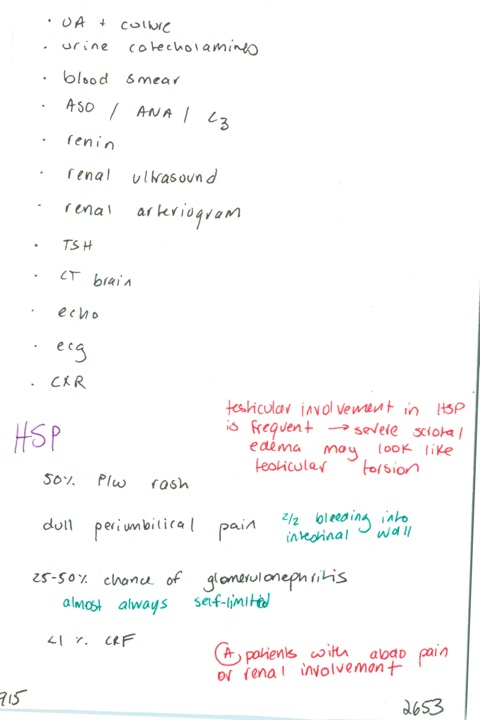 · UA + culture
· urine catecholamines
· blood smear
· ASO / ANA / C3
· renin
· renal ultrasound
· renal arteriogram
· TSH
· CT brain
· echo
· ecg
· CXR
testicular involvement in HSP
is frequent → severe scrotal
edema may look like
testicular torsion
HSP
50% P/w rash
dull periumbilical pain
2/2 bleeding into
intestinal wall
25-50% chance of glomerulonephritis
almost always self-limited
<1 % CRF
A patients with abdo pain
or renal involvement
915
2653